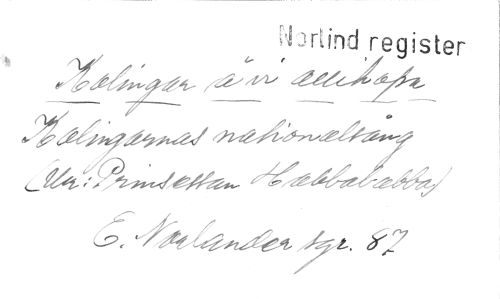 Norlind register
Kolingar ä' vi allihopa
Kolingarnas nationalsång
(Ur: Prinsessan Habbababba)
E. Norlander sgr. 87